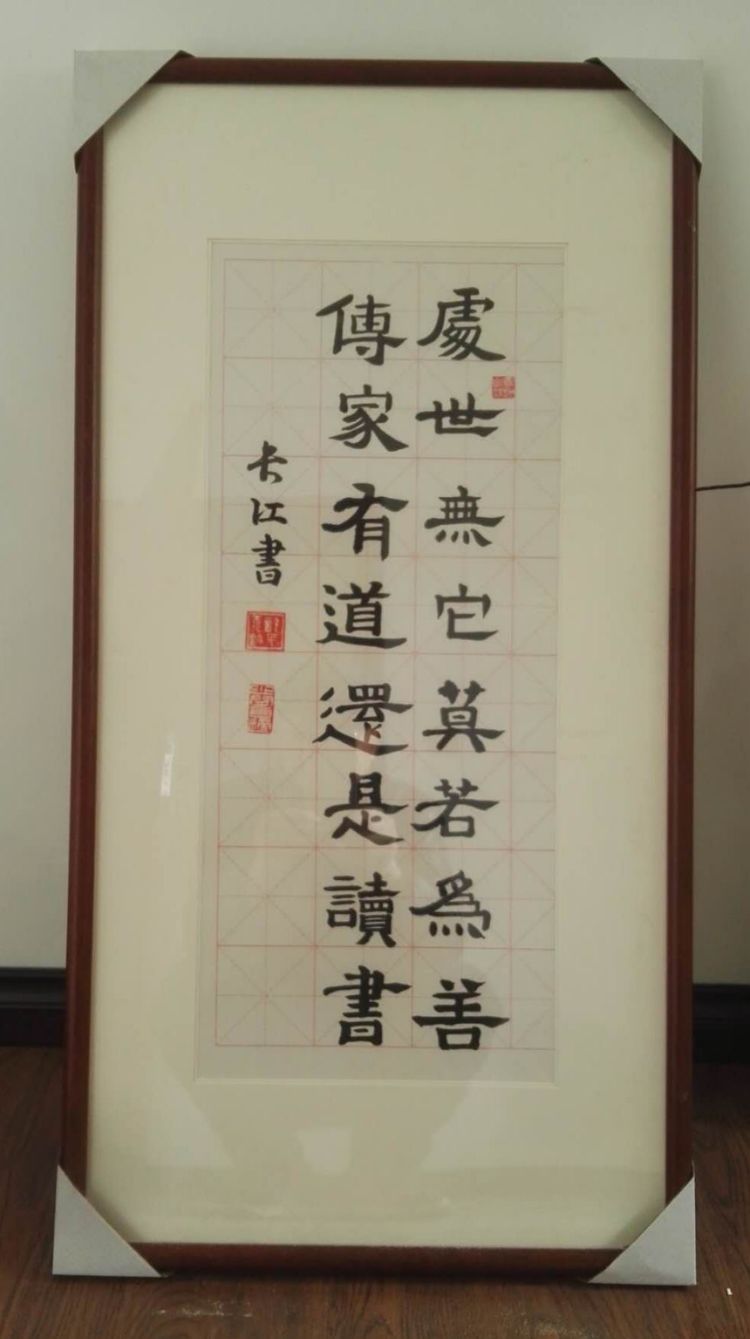 處世無它莫若為善
傳家有道還是讀書
长江書